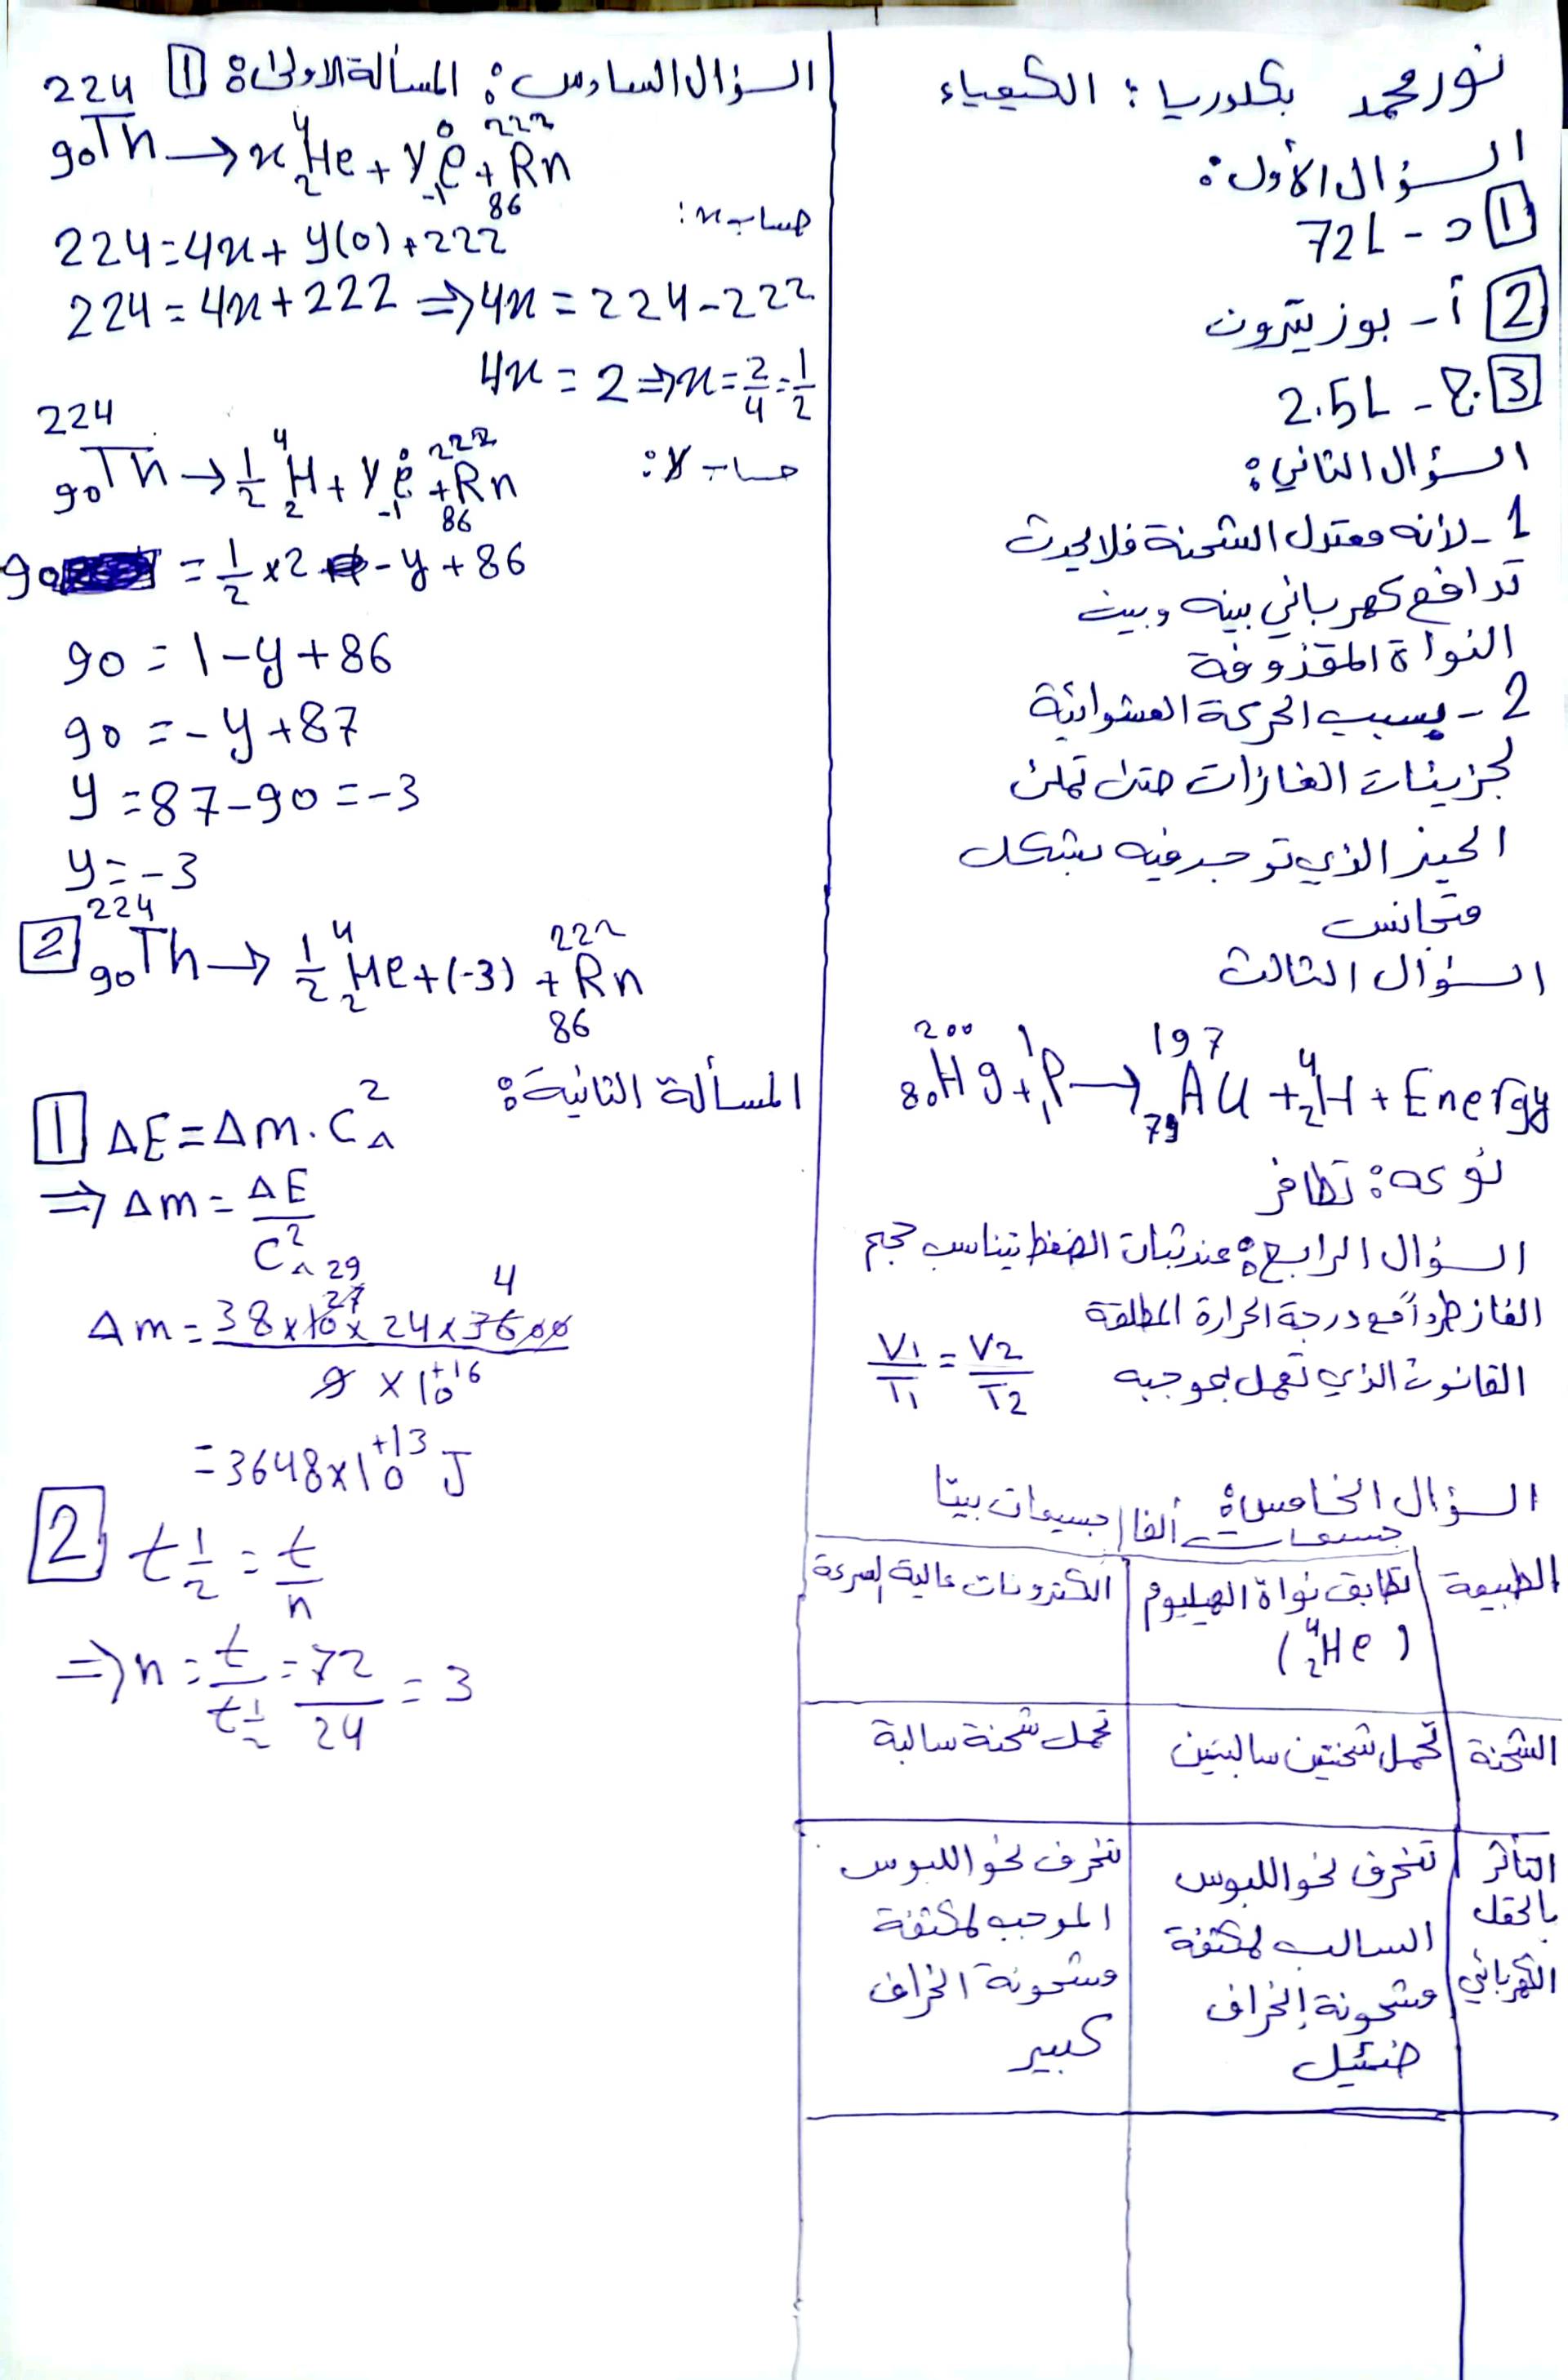 نور محمد بكلوريا : الكيمياء
السؤال الأول :
1 د - 72L
2 أ - بوزيترون
3 ج - 2.5L
السؤال الثاني :
1 - لأنه معتدل الشحنة فلا يحدث
تدافع كهربائي بينه وبين
النواة المقذوفة
2 - بسبب الحركة العشوائية
لجزيئات الغازات حتى تملئ
الحيز الذي توجد فيه بشكل
متجانس
السؤال الثالث
²⁰⁰₈₀Hg + ¹₁P → ¹⁹⁷₇₉Au + ⁴₂H + Energy
نوعه : تطافر
السؤال الرابع : عند ثبات الضغط يتناسب حجم
الغاز طرداً مع درجة الحرارة المطلقة
القانون الذي تعمل بموجبه V1/T1 = V2/T2
السؤال الخامس :
جسيمات ألفا | جسيمات بيتا
الطبيعة | تطابق نواة الهيليوم (⁴₂He) | الكترونات عالية السرعة
الشحنة | تحمل شحنتين سالبتين | تحمل شحنة سالبة
التأثر بالحقل الكهربائي | تنحرف نحو اللبوس السالب لمكثفة مشحونة إنحراف ضئيل | تنحرف نحو اللبوس الموجب لمكثفة مشحونة انحراف كبير
السؤال السادس : المسألة الاولى : 1
²²⁴₉₀Th → x ⁴₂He + y ⁰₋₁e + ²²²₈₆Rn
حساب x :
224 = 4x + y(0) + 222
224 = 4x + 222 ⇒ 4x = 224 - 222
4x = 2 ⇒ x = 2/4 = 1/2
حساب y :
²²⁴₉₀Th → 1/2 ⁴₂H + y ⁰₋₁e + ²²²₈₆Rn
90 = 1/2 × 2 - y + 86
90 = 1 - y + 86
90 = - y + 87
y = 87 - 90 = -3
y = -3
2 ²²⁴₉₀Th → 1/2 ⁴₂He + (-3) + ²²²₈₆Rn
المسألة الثانية :
1 ΔE = Δm . C²
⇒ Δm = ΔE/C²
Δm = 38 × 10²⁷ × 24 × 3600 / 9 × 10⁺¹⁶
29 4
= 3648 × 10⁺¹³ J
2 t 1/2 = t/n
⇒ n = t/t 1/2 = 72/24 = 3